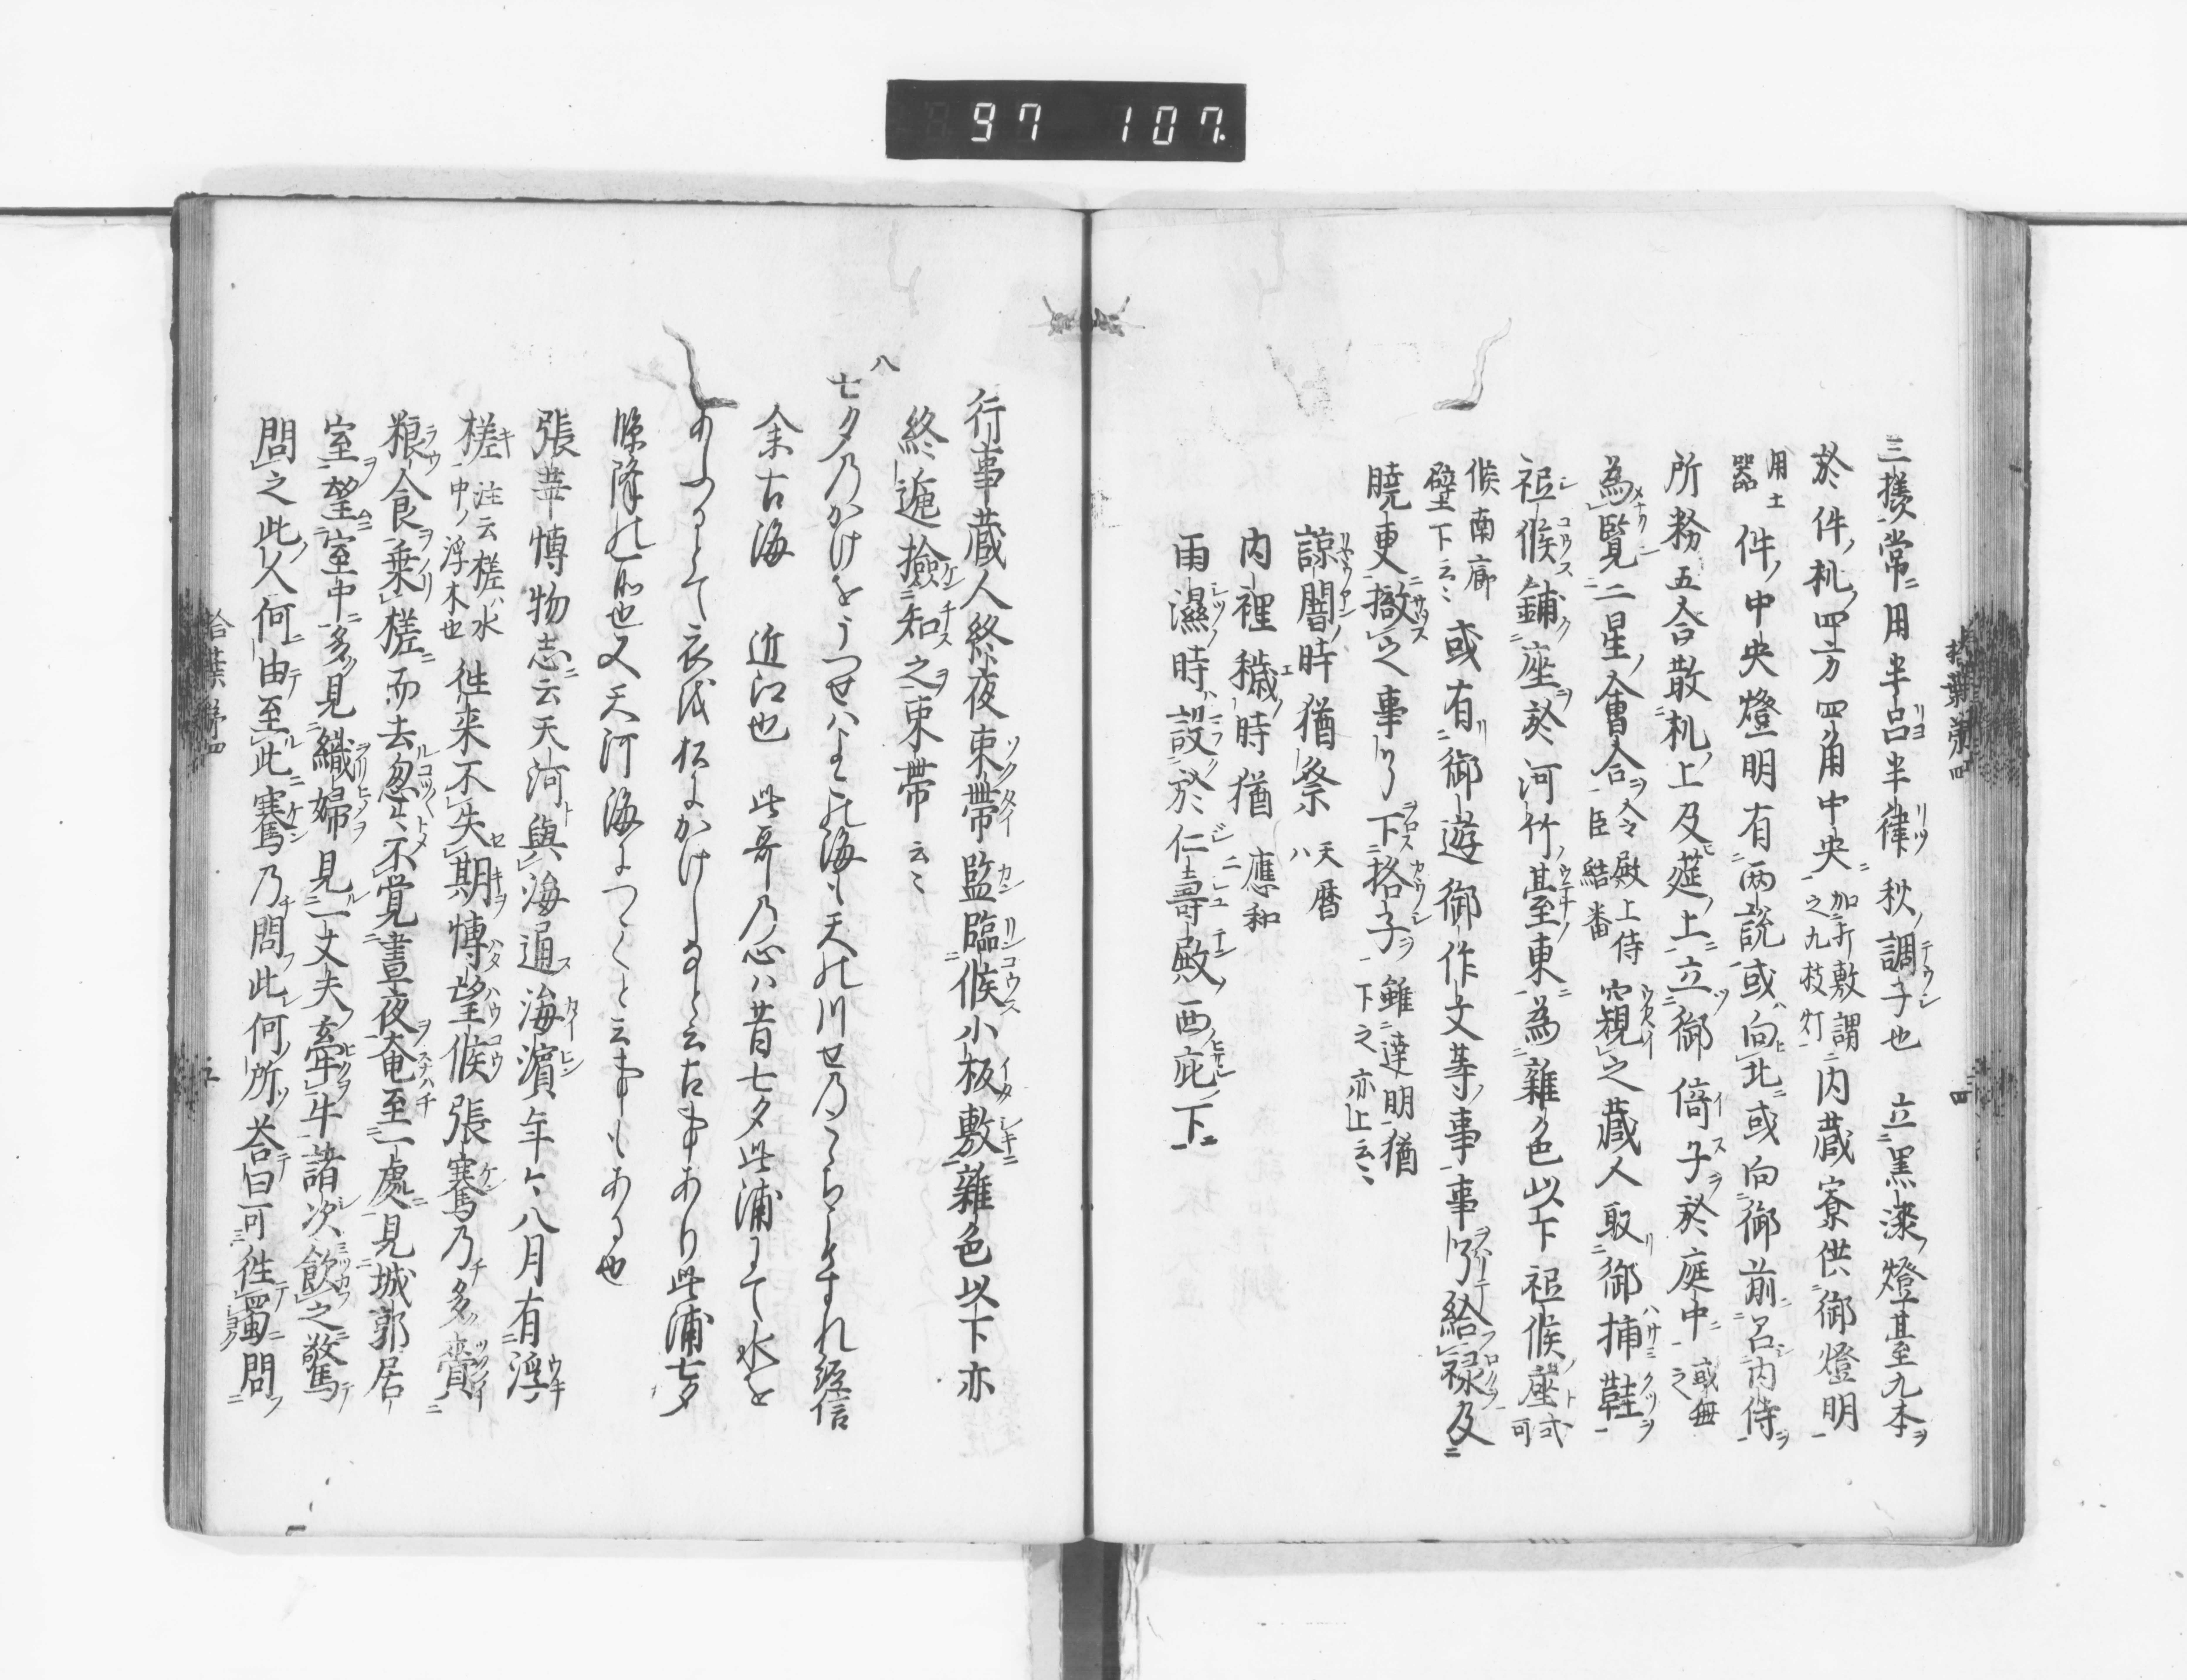 97 107
三撥常用半呂半律秋調子也 立黒漆燈䑓九本
於件机四方四角中央加折敷謂之九枝灯内蔵寮供御燈明
用土器件中央燈明有両説或向北或向御前召内侍
所粉五合散机上及莚上立御倚子於庭中或無之
為覧二星會合令殿上侍臣結番窺之蔵人取御挿鞋
祗候鋪座於河竹䑓東為雑色以下祗候座式可
候南廊壁下云々或有御遊御作文等事事了給禄及
暁更撤之事了下格子雖達明猶下之亦止云々
諒闇時猶祭天暦八
内裡穢時猶應和二
雨濕時設於仁壽殿西庇下
拾葉第四
四
行事蔵人終夜束帯監臨候小板敷雑色以下亦
終夜撿知之束帯云々
八
七夕乃かけをうつせはよその海も天の川せの 經信
余古海 近江也 此哥乃心ハ昔七夕此浦にて水を
あふるとて衣越松にかけしなと云古事あり此浦七夕
降の所也又天河海につゝくと云事もある也
張華博物志云天河與海通海濱年々八月有浮
槎注云槎ハ水中ノ浮木也徃来不失期博望候張騫乃多賷
粮食乗槎而去忽々不覚晝夜奄至一處見城郭居
室望室中多見織婦見一丈夫牽牛諸次飲之驚
問之此人何由至此騫乃問此何所荅曰可徃蜀問
拾葉第四
五